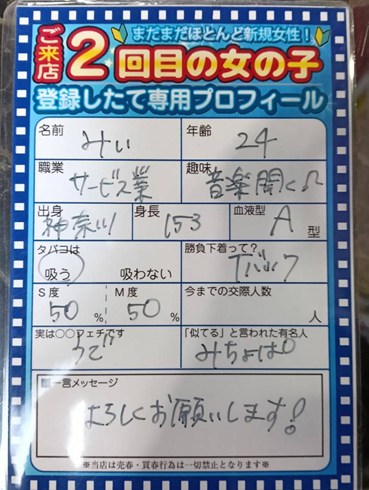 まだまだほとんど新規女性!
ご来店2回目の女の子
登録したて専用プロフィール
名前 みい 年齢 24
職業 サービス業 趣味 音楽聞く
出身 神奈川 身長 153 血液型 A 型
タバコは 吸う 吸わない 勝負下着って? Tバック
S度 50 % M度 50 % 今までの交際人数 人
実は○○フェチです うで
「似てる」と言われた有名人 みちょぱ
一言メッセージ
よろしくお願いします!
※当店は売春・買春行為は一切禁止となります※